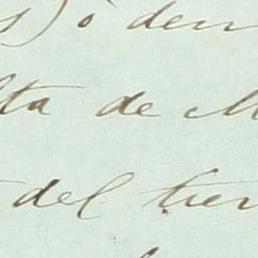 s) ó den
lta de M
del tier